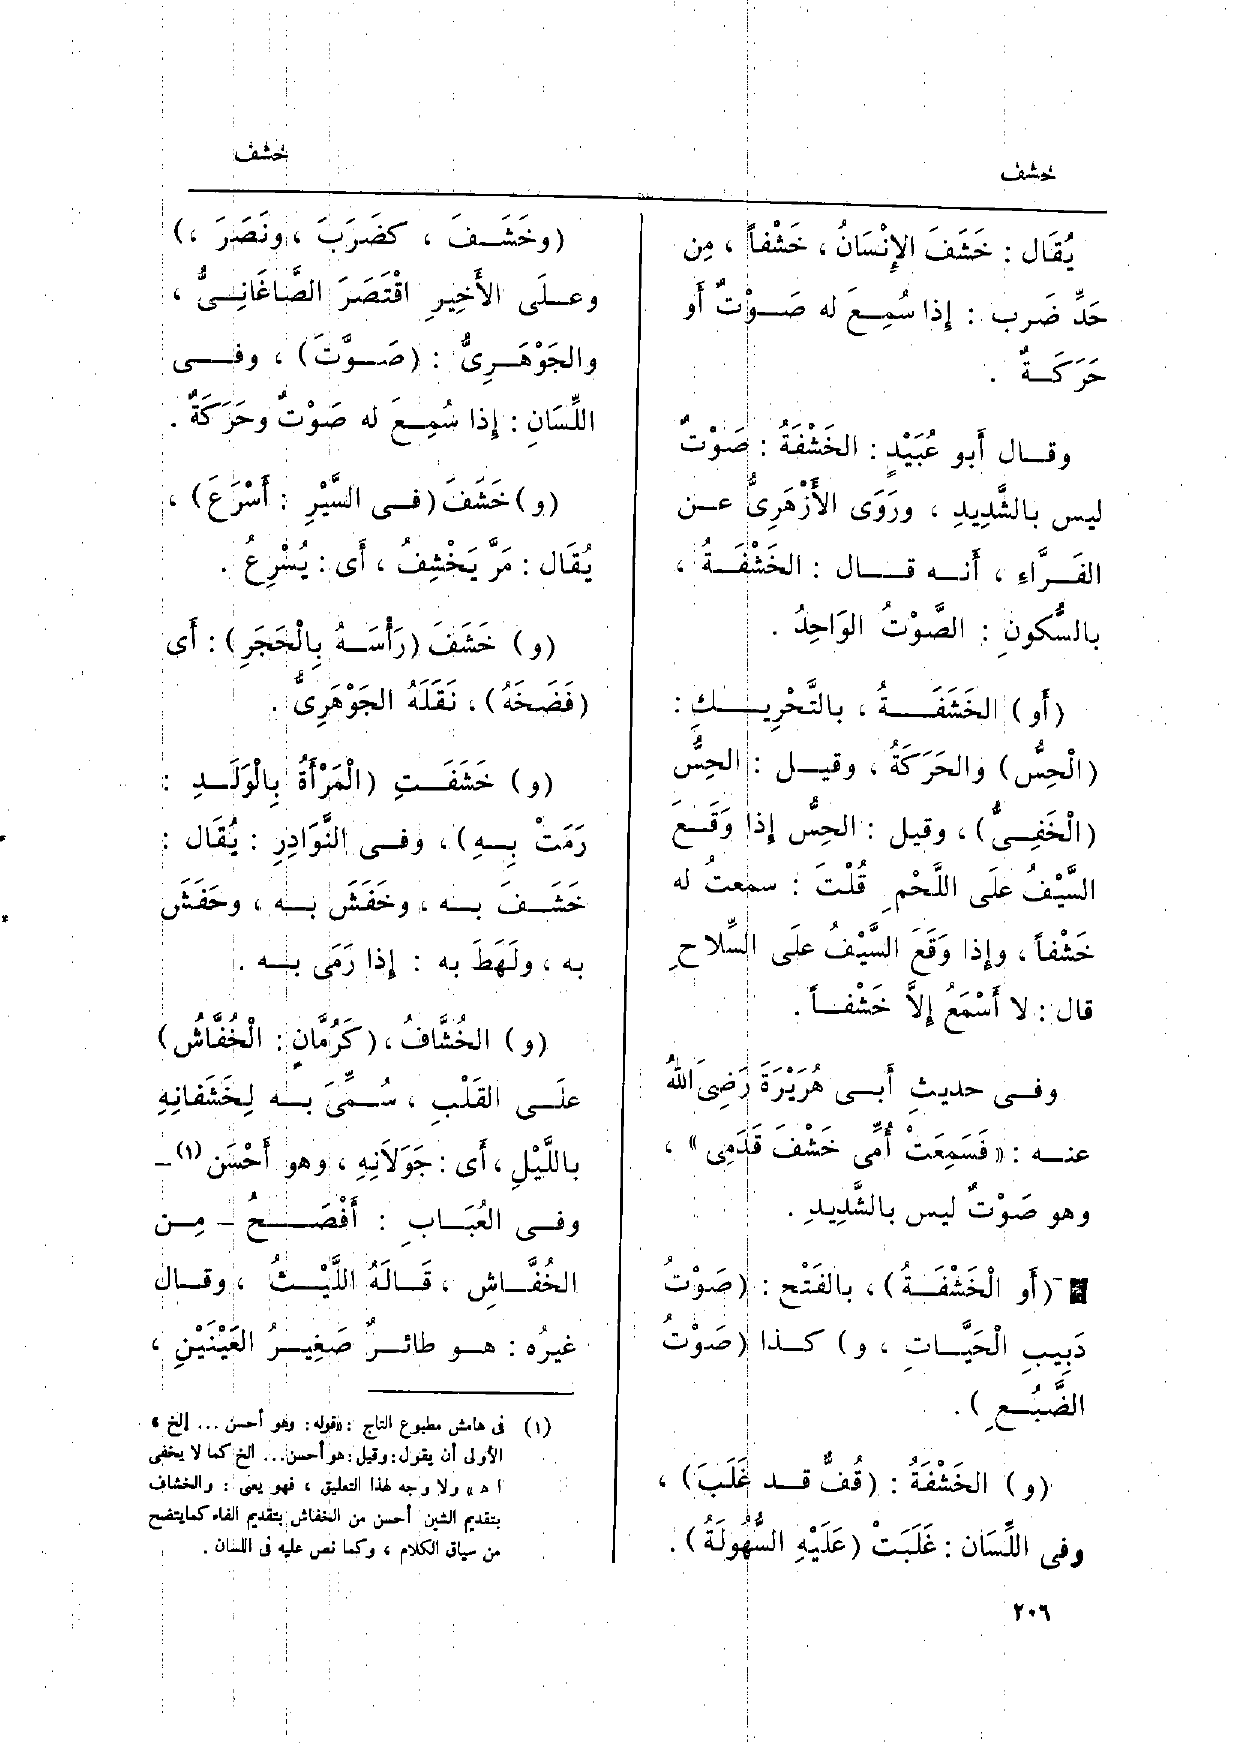 خشف
خشف
يُقَال : خَشَفَ الإِنْسَانُ ، خَشْفاً ، مِن
حَدِّ ضَرب : إِذا سُمِـعَ له صَـوْتٌ أَو
حَرَكَـةٌ .
وقـال أَبو عُبَيْدٍ : الخَشْفَةُ : صَوْتٌ
ليس بالشَّدِيدِ ، ورَوَى الأَزْهَرِىُّ عـن
الفَـرَّاءِ ، أَنـه قـال : الخَشْفَـةُ ،
بالسُّكونِ : الصَّوْتُ الوَاحِدُ .
(أَو) الخَشَفَـةُ ، بالتَّحْرِيـكِ :
(الْحِسُّ) والحَرَكَةُ ، وقيـل : الحِسُّ
(الْخَفِـىُّ) ، وقيل : الحِسُّ إِذا وَقَـعَ
السَّيْفُ علَى اللَّحْمِ قُلْتَ : سمعتُ له
خَشْفاً ، وإِذا وَقَعَ السَّيْفُ علَى السِّلاحِ
قال : لا أَسْمَعُ إِلاَّ خَشْفـاً .
وفـى حديثِ أَبـى هُرَيْرَةَ رَضِىَ اللهُ
عنـه : «فَسَمِعَتْ أُمِّى خَشْفَ قَدَمِى» ،
وهو صَوْتٌ ليس بالشَّدِيدِ .
(أَو الْخَشْفَـةُ) ، بالفَتْح : (صَوْتُ
دَبِيبِ الْحَيَّـاتِ ، و) كـذا (صَوْتُ
الضَّبُـعِ) .
(و) الخَشْفَةُ : (قُفٌّ قـد غَلَبَ) ،
وفى اللِّسَان : غَلَبَتْ (عَلَيْهِ السُّهُولَةُ) .
(وخَشَـفَ ، كضَرَبَ ، ونَصَرَ ،)
وعـلَى الأَخِيرِ اقْتَصَرَ الصَّاغَانِـىُّ ،
والجَوْهَـرِىُّ : (صَـوَّتَ) ، وفـى
اللِّسَانِ : إِذا سُمِـعَ له صَوْتٌ وحَرَكَةٌ .
(و) خَشَفَ (فـى السَّيْرِ : أَسْرَعَ) ،
يُقَال : مَرَّ يَخْشِفُ ، أَى : يُسْرِعُ .
(و) خَشَفَ (رَأْسَـهُ بِالْحَجَرِ) : أَى
(فَضَخَهُ) ، نَقَلَهُ الجَوْهَرِىُّ .
(و) خَشَفَـتِ (الْمَرْأَةُ بِالْوَلَـدِ :
رَمَتْ بِـهِ) ، وفـى النَّوَادِرِ : يُقَال :
خَشَـفَ بـه ، وخَفَشَ بـه ، وحَفَشَ
به ، ولَهَطَ به : إِذا رَمَى بـه .
(و) الخُشَّافُ ، (كَرُمَّانٍ : الْخُفَّاش)
علَـى القَلْبِ ، سُـمِّىَ بـه لِخَشَفَانِهِ
باللَّيْلِ ، أَى : جَوَلَانِهِ ، وهو أَحْسَن (١) -
وفـى العُبَـابِ : أَفْصَـحُ - مِـن
الخُفَّـاشِ ، قَـالَهُ اللَّيْـثُ ، وقـال
غيرُه : هـو طائـرٌ صَغِيـرُ العَيْنَيْنِ ،
(١) فى هامش مطبوع التاج : «قوله : وهو أحسن ... إلخ ،
الأولى أن يقول : وقيل : هو أحسن ... الخ كما لا يخفى
ا ه» ولا وجه لهذا التعليق ، فهو يعنى : والخشاف
بتقديم الشين أحسن من الخفاش بتقديم الفاء كما يتضح
من سياق الكلام ، وكما نص عليه فى اللسان .
٢٠٦